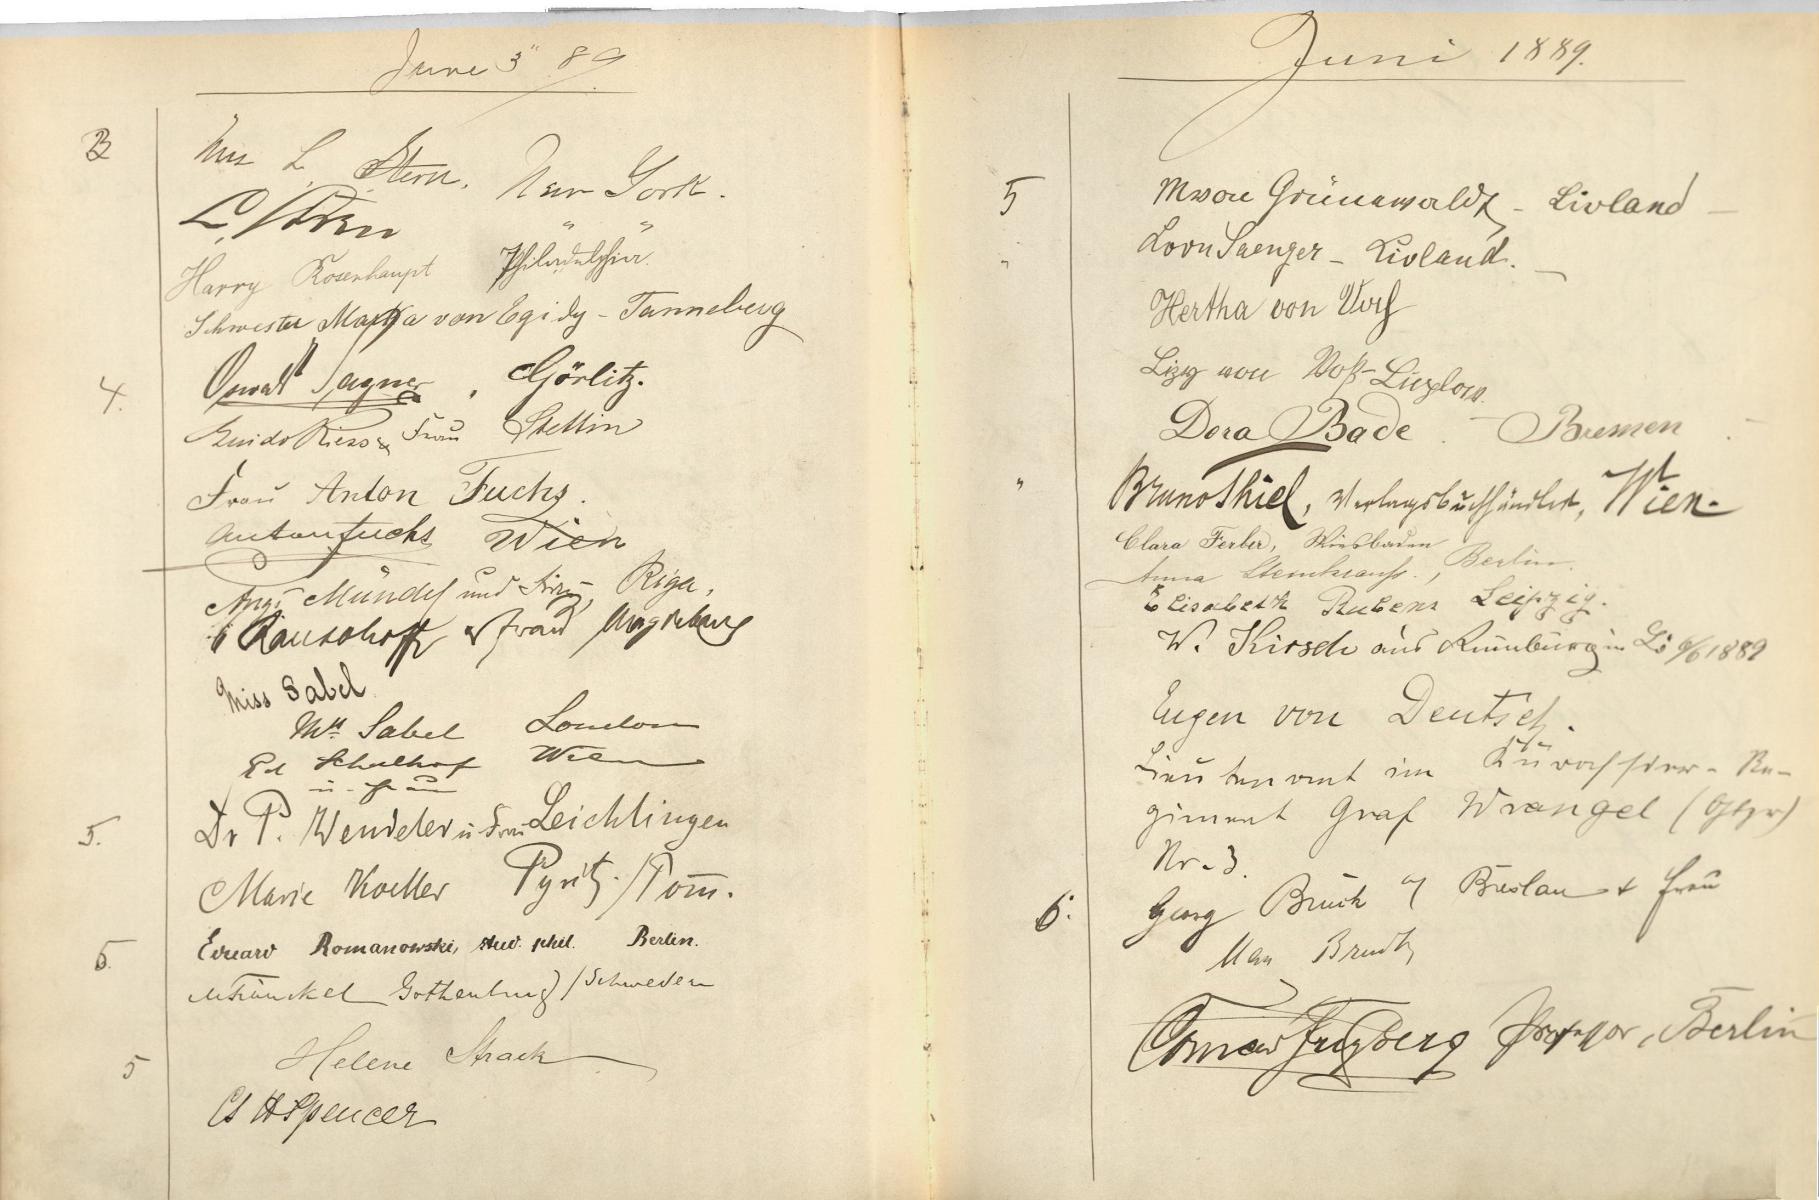 June 3" 89
3 Mrs L. Stern, New York.
L. Stern " "
Harry Rosenhaupt Philadelphia.
Schwester Marga von Egidy - Tanneberg
4. Oswald Sagner, Görlitz.
Guido Riess & Frau Stettin
Frau Anton Fuchs.
Anton Fuchs Wien
Aug. Mündel und Frau, Riga,
Rausohoff & Frau, Magdeburg
Miss Sabel
Mrs Sabel London
Ed Schulhof Wien
u. Frau
5. Dr P. Wendeler u Frau Leichlingen
Marie Koeller Pyritz / Pom.
5. Eduard Romanowski, stud. phil. Berlin.
Fränckel Gothenburg / Schweden
5 Helene Strack
Ch H Spencer
Juni 1889.
5 M von Grünewaldt - Livland -
" Saenger - Livland. -
Hertha von
Lizzy von Voß-
Dora Bade. - Bremen
" Bruno Thiel, Verlagsbuchhändler, Wien.
Clara Ferber, Wiesbaden
Anna, Berlin.
Elisabeth Rubens Leipzig.
W. Kirsch aus Rumburg in 6/6 1889
Eugen von Deutsch.
Lieutenant im Kürassier-Re-
giment Graf Wrangel (Ostpr)
Nr. 3.
6. Georg Bruck Breslau + Frau
Max
Professor, Berlin